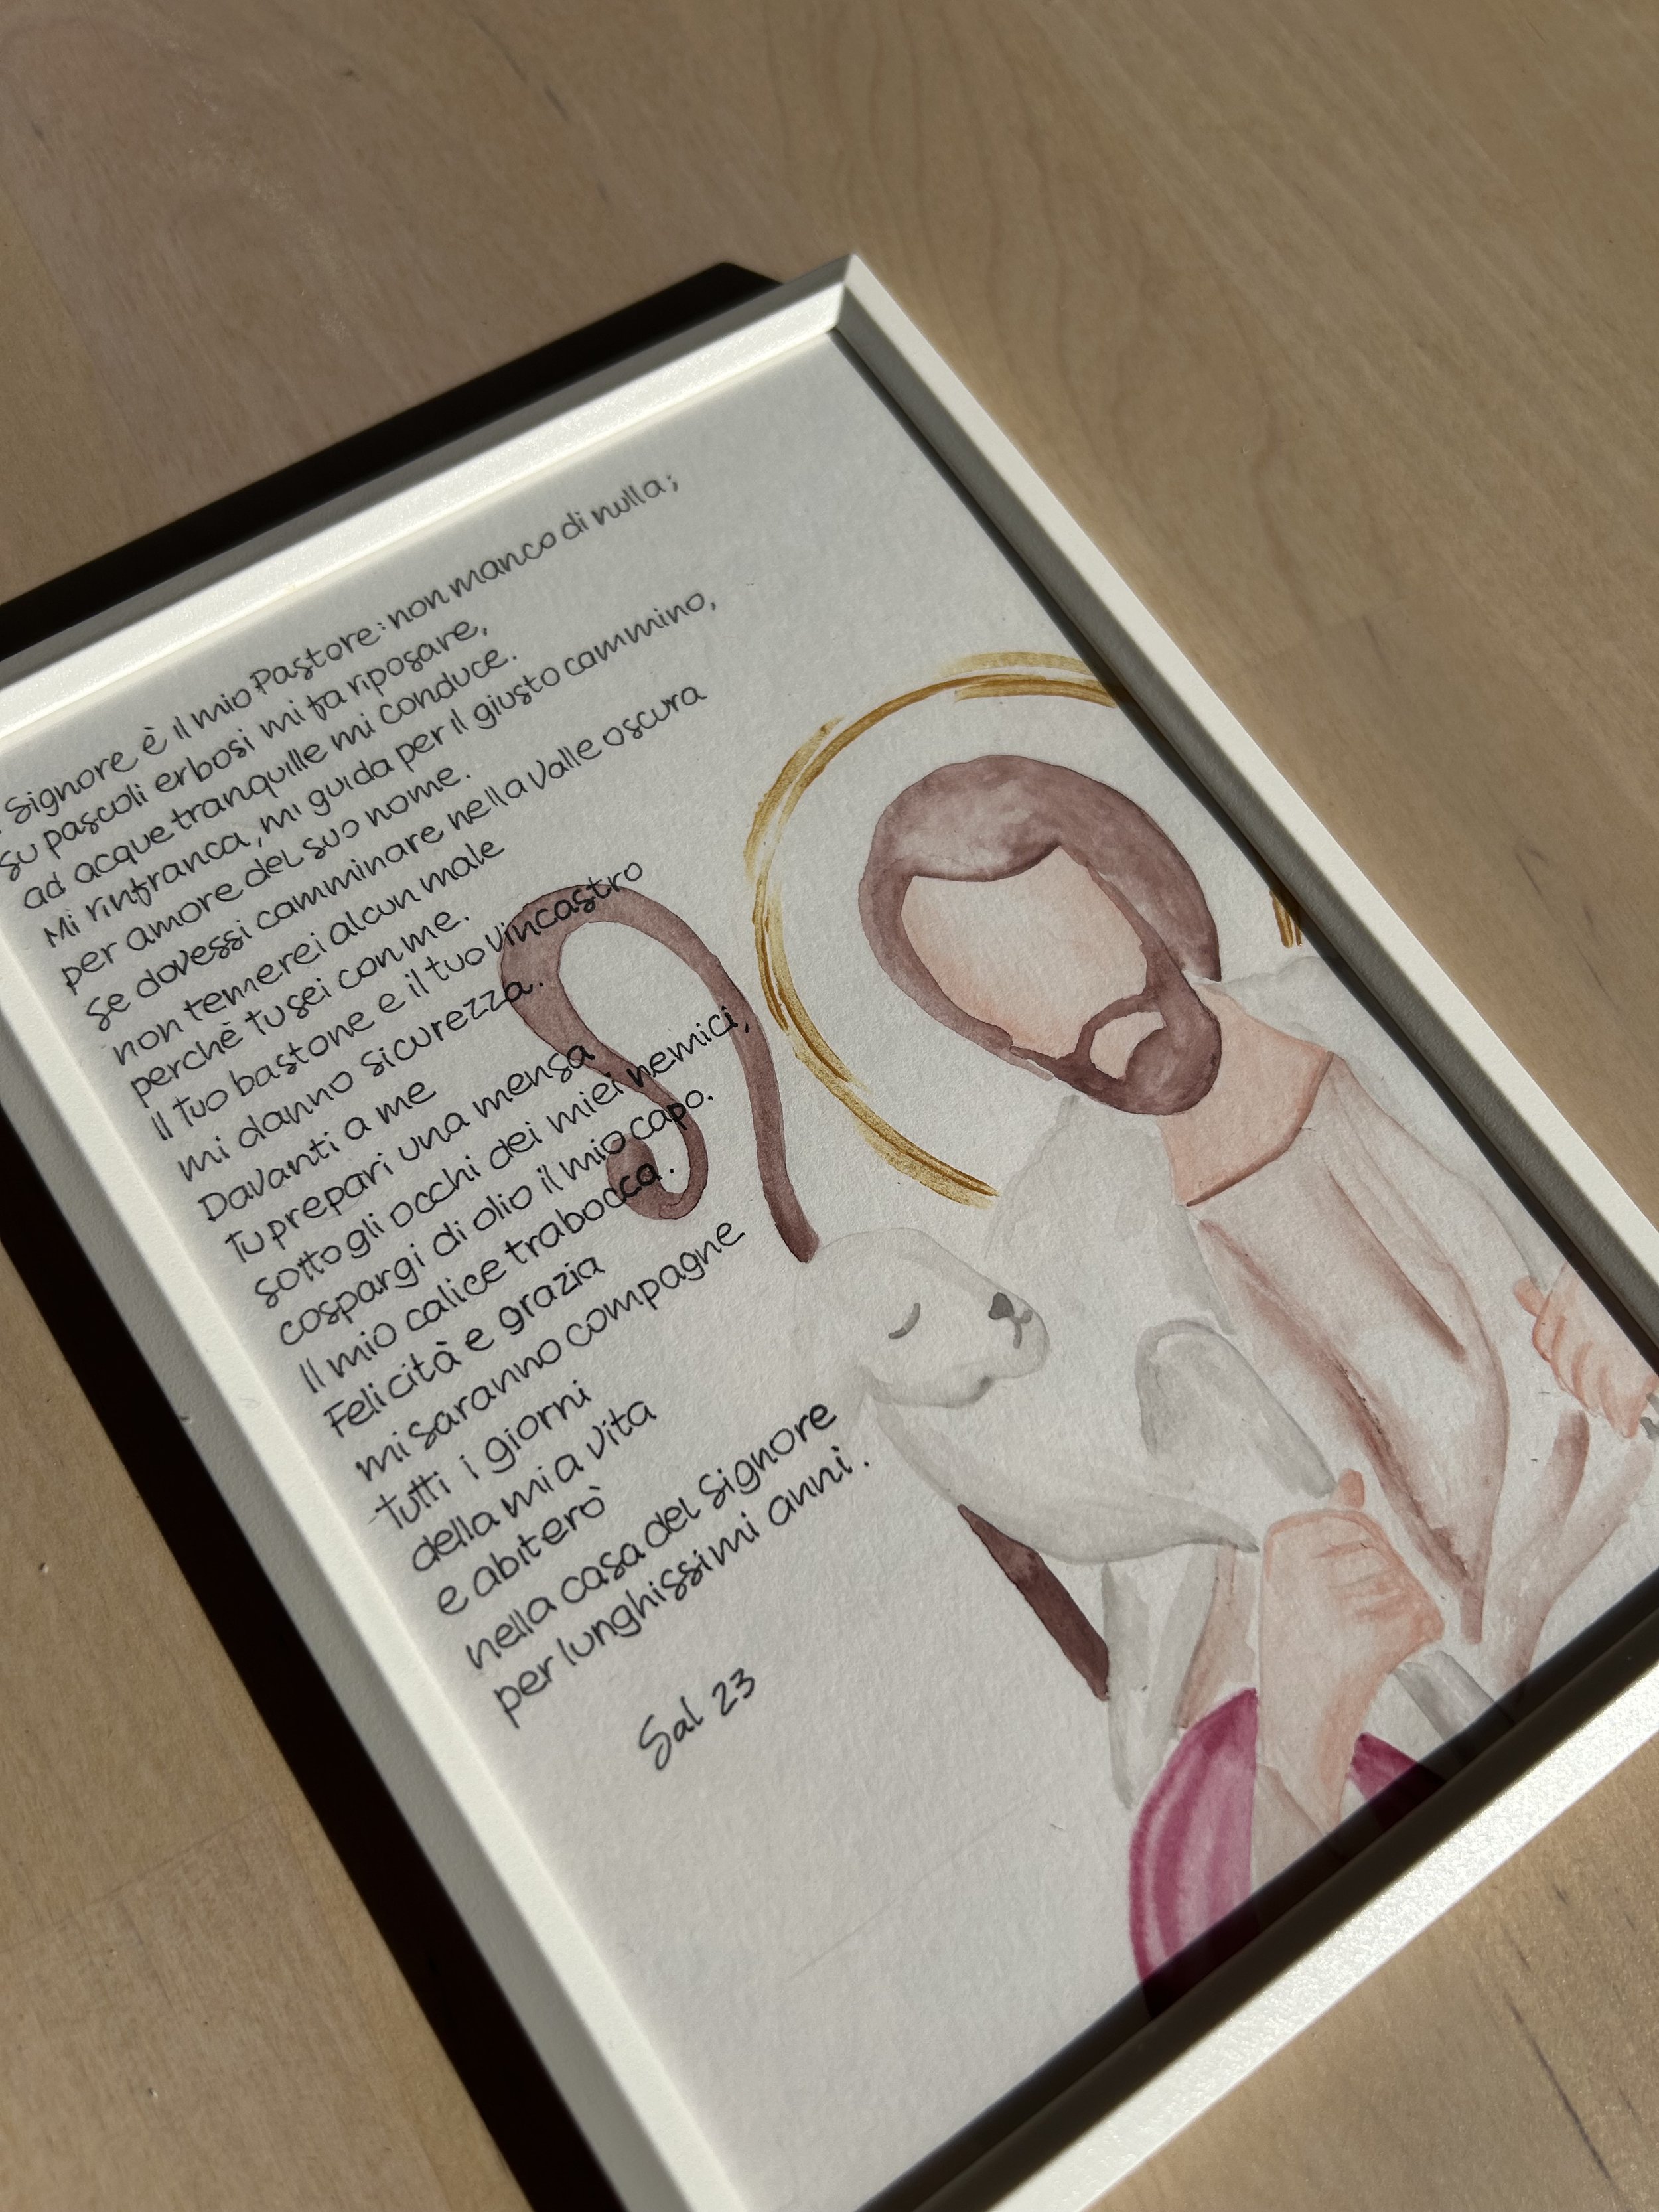 Signore è il mio Pastore: non manco di nulla;
su pascoli erbosi mi fa riposare,
ad acque tranquille mi conduce.
Mi rinfranca, mi guida per il giusto cammino,
per amore del suo nome.
se dovessi camminare nella valle oscura
non temerei alcun male
perchè tu sei con me.
Il tuo bastone e il tuo vincastro
mi danno sicurezza.
Davanti a me
Tu prepari una mensa
sotto gli occhi dei miei nemici,
cospargi di olio il mio capo.
Il mio calice trabocca.
Felicità e grazia
mi saranno compagne
tutti i giorni
della mia vita
e abiterò
nella casa del Signore
per lunghissimi anni.
Sal 23